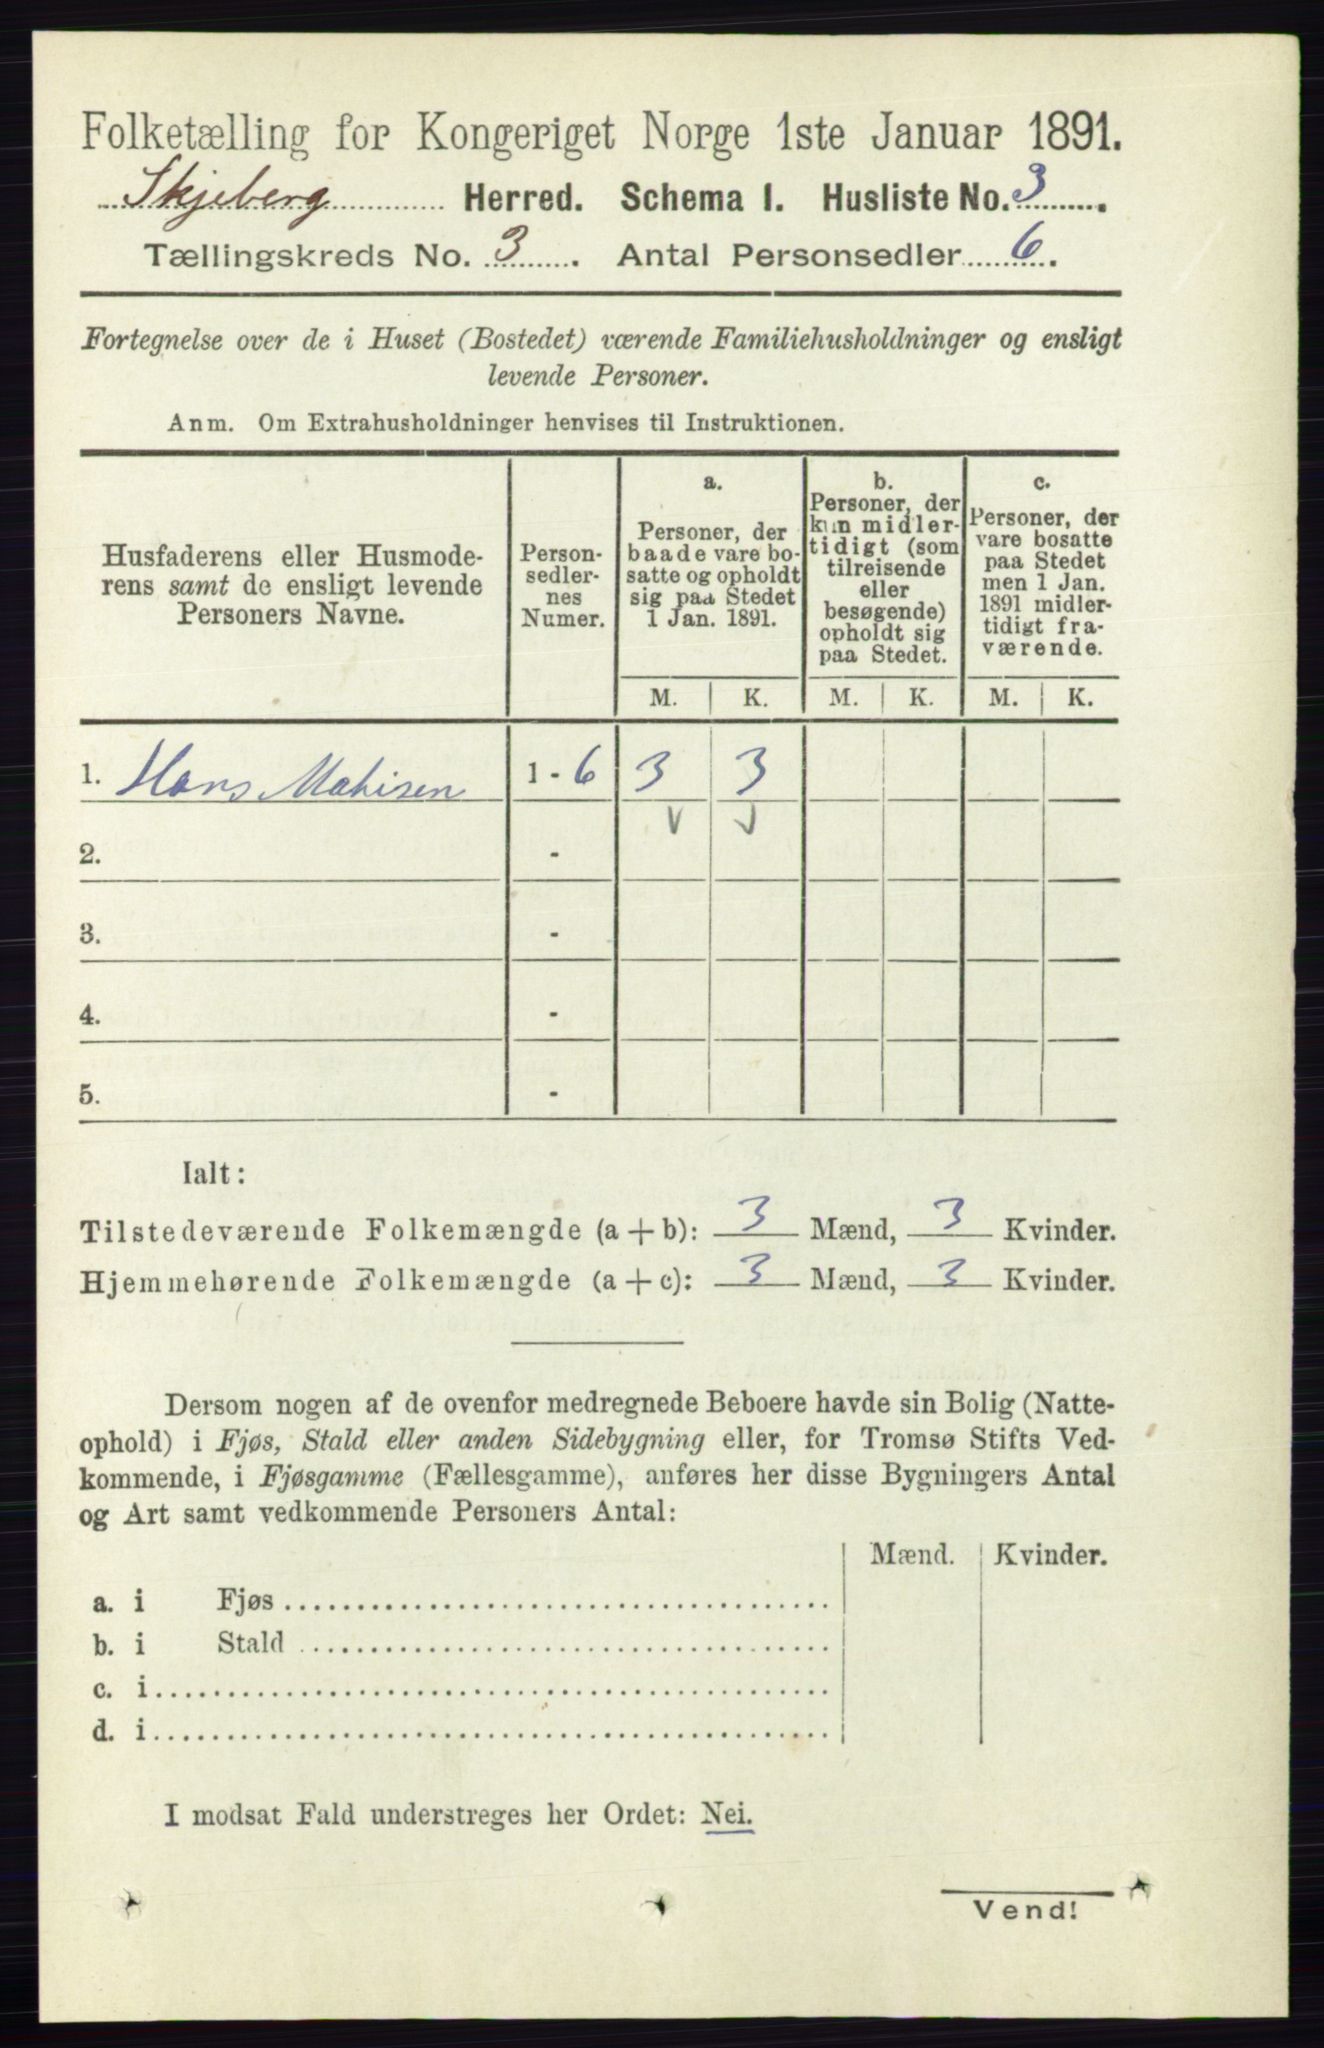 Folketælling for Kongeriget Norge 1ste Januar 1891.
Skjeberg Herred. Schema I. Husliste No. 3.
Tællingskreds No. 3. Antal Personsedler 6.
Fortegnelse over de i Huset (Bostedet) værende Familiehusholdninger og ensligt
levende Personer.
Anm. Om Extrahusholdninger henvises til Instruktionen.
Husfaderens eller Husmode-
rens samt de ensligt levende
Personers Navne.
Person-
sedler-
nes
Numer.
a.
Personer, der
baade vare bo-
satte og opholdt
sig paa Stedet
1 Jan. 1891.
b.
Personer, der
kun midler-
tidigt (som
tilreisende
eller
besøgende)
opholdt sig
paa Stedet.
c.
Personer, der
vare bosatte
paa Stedet
men 1 Jan.
1891 midler-
tidigt fra-
værende.
M. K. M. K. M. K.
1. Hans Mahisen 1 - 6 3 3
2. -
3. -
4. -
5. -
Ialt:
Tilstedeværende Folkemængde (a + b): 3 Mænd, 3 Kvinder.
Hjemmehørende Folkemængde (a + c): 3 Mænd, 3 Kvinder.
Dersom nogen af de ovenfor medregnede Beboere havde sin Bolig (Natte-
ophold) i Fjøs, Stald eller anden Sidebygning eller, for Tromsø Stifts Ved-
kommende, i Fjøsgamme (Fællesgamme), anføres her disse Bygningers Antal
og Art samt vedkommende Personers Antal:
Mænd. Kvinder.
a. i Fjøs
b. i Stald
c. i
d. i
I modsat Fald understreges her Ordet: Nei.
Vend!